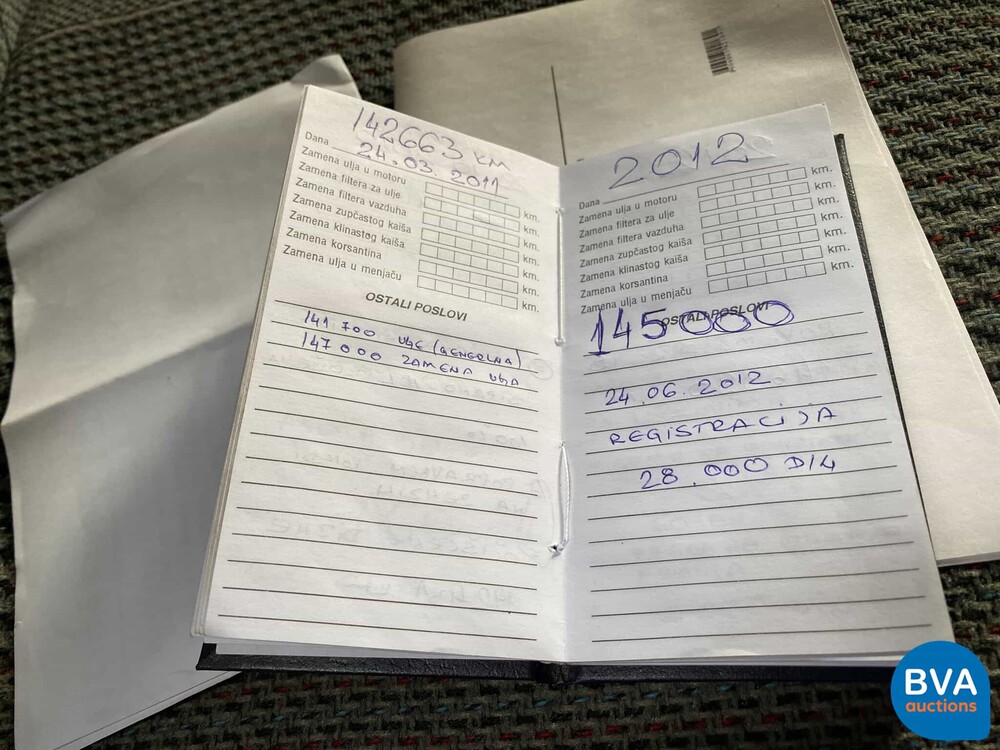 142663 KM
Dana 24.03.2011
Zamena ulja u motoru km.
Zamena filtera za ulje km.
Zamena filtera vazduha km.
Zamena zupčastog kaiša km.
Zamena klinastog kaiša km.
Zamena korsantina km.
Zamena ulja u menjaču km.
OSTALI POSLOVI
141.700 ULJE
147000 ZAMENA ULJA
2012
Dana
Zamena ulja u motoru km.
Zamena filtera za ulje km.
Zamena filtera vazduha km.
Zamena zupčastog kaiša km.
Zamena klinastog kaiša km.
Zamena korsantina km.
Zamena ulja u menjaču
OSTALI POSLOVI
145000
24.06.2012
REGISTRACIJA
28.000
BVA
auctions